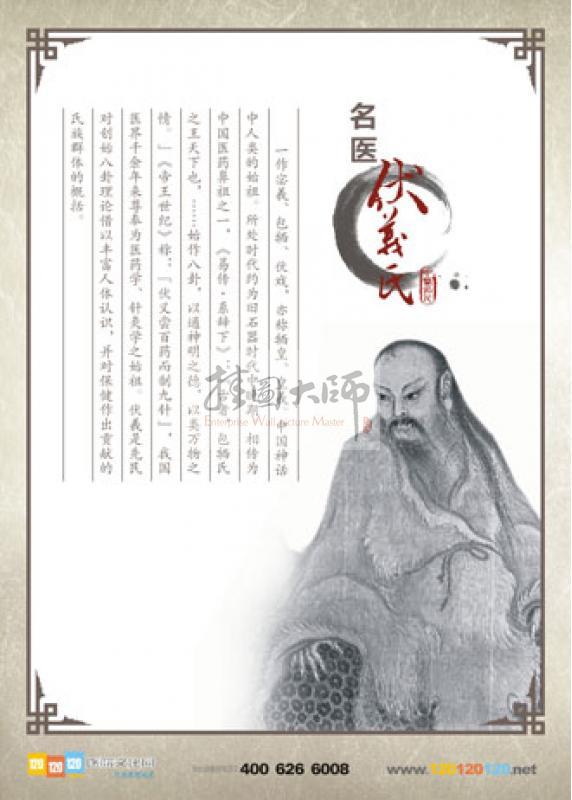 名医
伏羲氏
一作宓羲、包牺、伏戏，亦称牺皇、皇羲。中国神话
中人类的始祖。所处时代约为旧石器时代中晚期。相传为
中国医药鼻祖之一。《易传·系辞下》：
包牺氏
之王天下也，……始作八卦，以通神明之德，以类万物之
情。」《帝王世纪》称：「伏羲尝百药而制九针」，我国
医界千余年来尊奉为医药学、针灸学之始祖。伏羲是先民
对创始八卦理论借以丰富人体认识，并对保健作出贡献的
氏族群体的概括。
挂图大师
Enterprise Wall picture Master
120 120 120
400 626 6008
www.120120120.net